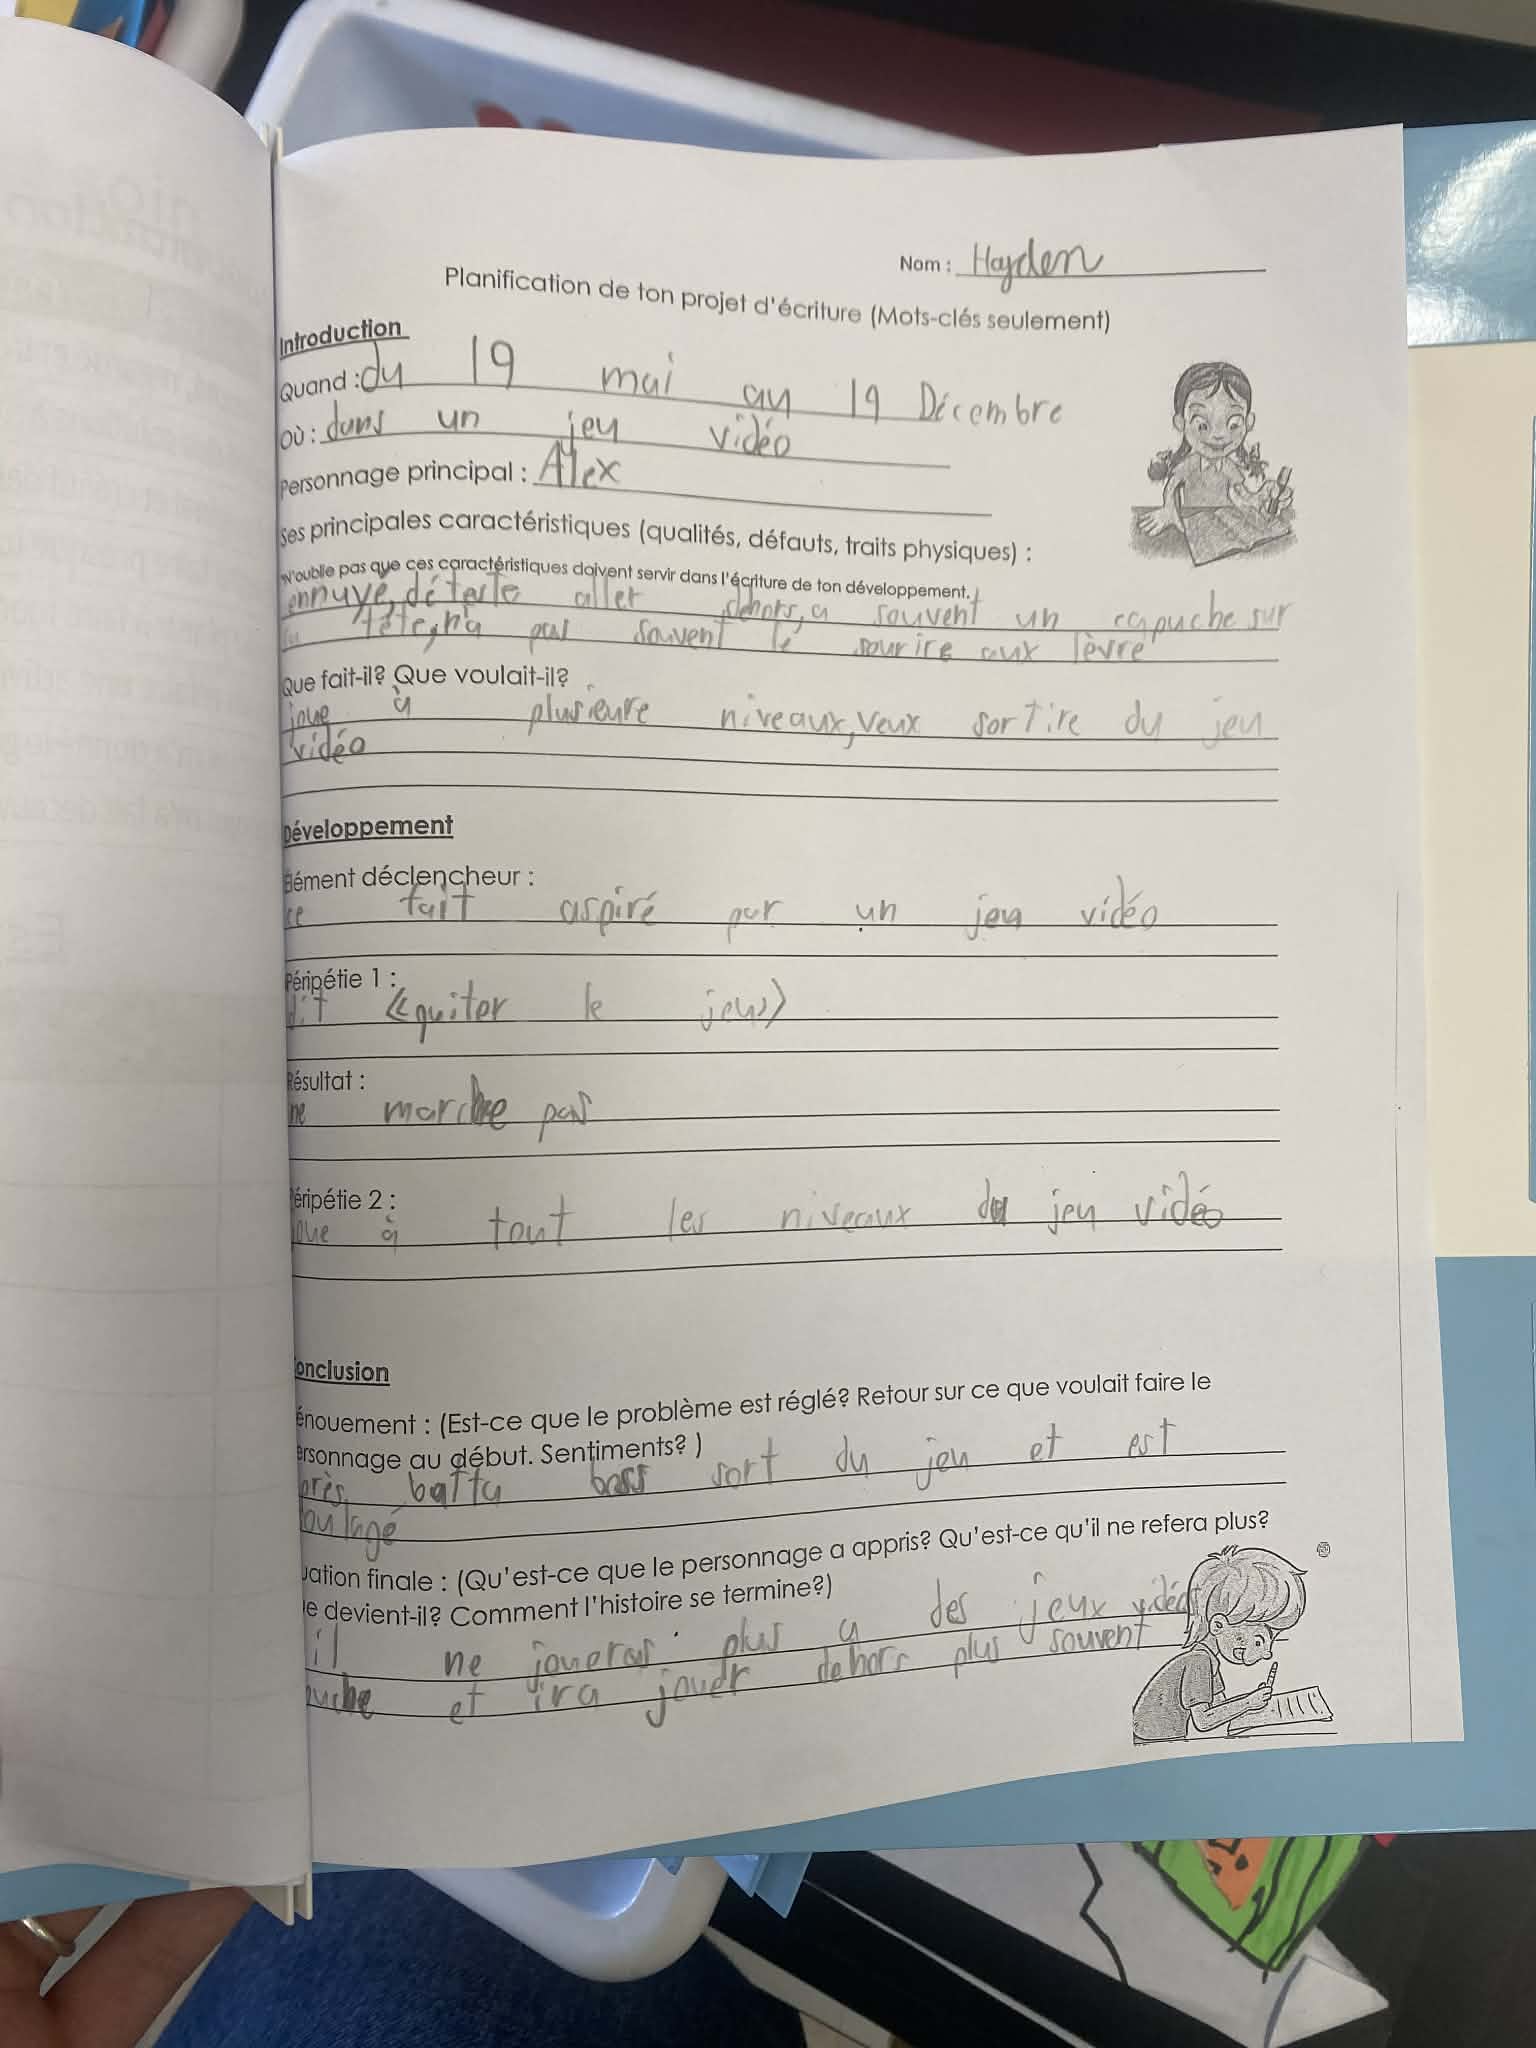 Nom : Hayden
Planification de ton projet d'écriture (Mots-clés seulement)
Introduction
Quand : du 19 mai au 19 Décembre
Où : dans un jeu vidéo
Personnage principal : Alex
Ses principales caractéristiques (qualités, défauts, traits physiques) :
N'oublie pas que ces caractéristiques doivent servir dans l'écriture de ton développement.
ennuyé, déteste aller dehors, a souvent un capuche sur
la tête, n'a pas souvent le sourire aux lèvre
Que fait-il? Que voulait-il?
joue à plusieure niveaux, veux sortire du jeu
vidéo
Développement
Élément déclencheur :
ce fait aspiré par un jeu vidéo
Péripétie 1 :
dit «quiter le jeu»
Résultat :
ne marche pas
éripétie 2 :
oue à tout les niveaux du jeu vidéo
onclusion
énouement : (Est-ce que le problème est réglé? Retour sur ce que voulait faire le
ersonnage au début. Sentiments? )
près battu boss sort du jeu et est
oulagé
uation finale : (Qu'est-ce que le personnage a appris? Qu'est-ce qu'il ne refera plus?
e devient-il? Comment l'histoire se termine?)
il ne joueras plus a des jeux vidéo
et ira jouer dehors plus souvent